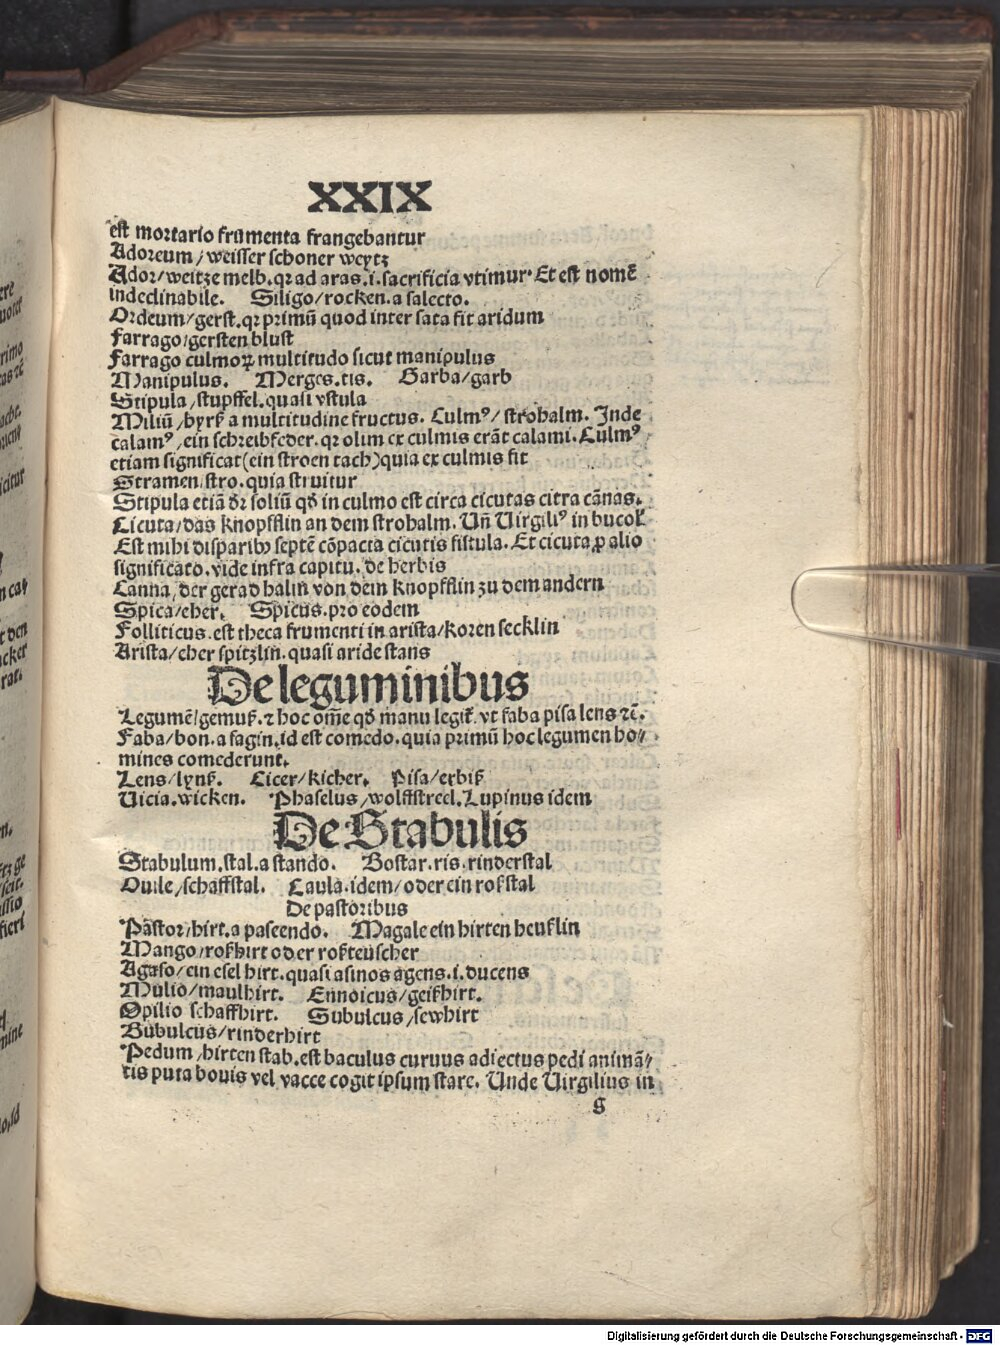 XXIX
est mortario frumenta frangebantur
Adoreum/weisser schoner weytz
Ador/weitze melb.qꝛ ad aras.i.sacrificia vtimur. Et est nomē
indeclinabile. Siligo/rocken.a salecto.
Ordeum/gerst.qꝛ primū quod inter sata fit aridum
Farrago/gersten blust
Farrago culmoꝝ multitudo sicut manipulus
Manipulus. Merges.tis. Garba/garb
Stipula/stupffel.quasi vstula
Miliū/hyrß a multitudine fructus. Culmꝰ/strohalm. Inde
calamꝰ/ein schreibfeder.qꝛ olim ex culmis erāt calami. Culmꝰ
etiam significat(ein stroen tach)quia ex culmis fit
Stramen/stro.quia struitur
Stipula etiā dꝛ foliū qd̄ in culmo est circa cicutas citra cānas.
Cicuta/das knopfflin an dem strohalm. Un̄ Uirgiliꝰ in bucol̄
Est mihi disparibꝫ septē cōpacta cicutis fistula. Et cicuta ꝓ alio
significato.vide infra capitu.de herbis
Canna/der gerad halm von dem knopfflin zu dem andern
Spica/eher. Spicus.pro eodem
Folliticus.est theca frumenti in arista/koren secklin
Arista/eher spitzlin.quasi aride stans
De leguminibus
Legumē/gemuß.⁊ hoc om̄e qd̄ manu legit̄.vt faba pisa lens ⁊c̄.
Faba/bon.a fagin.id est comedo.quia primū hoc legumen ho/
mines comederunt.
Lens/lynß. Cicer/kicher. Pisa/erbiß
Uicia.wicken. Phaselus/wolffstreel.Lupinus idem
De Stabulis
Stabulum.stal.a stando. Bostar.ris.rinderstal
Ouile/schaffstal. Caula.idem/oder ein roßstal
De pastoribus
Pastor/hirt.a pascendo. Magale ein hirten heußlin
Mango/roßhirt oder roßteuscher
Agaso/ein esel hirt.quasi asinos agens.i.ducens
Mulio/maulhirt. Ennoicus/geißhirt.
Opilio schaffhirt. Subulcus/sewhirt
Bubulcus/rinderhirt
Pedum/hirten stab.est baculus curuus adiectus pedi animā/
tis puta bouis vel vacce cogit ipsum stare. Unde Uirgilius in
g
Digitalisierung gefördert durch die Deutsche Forschungsgemeinschaft - DFG